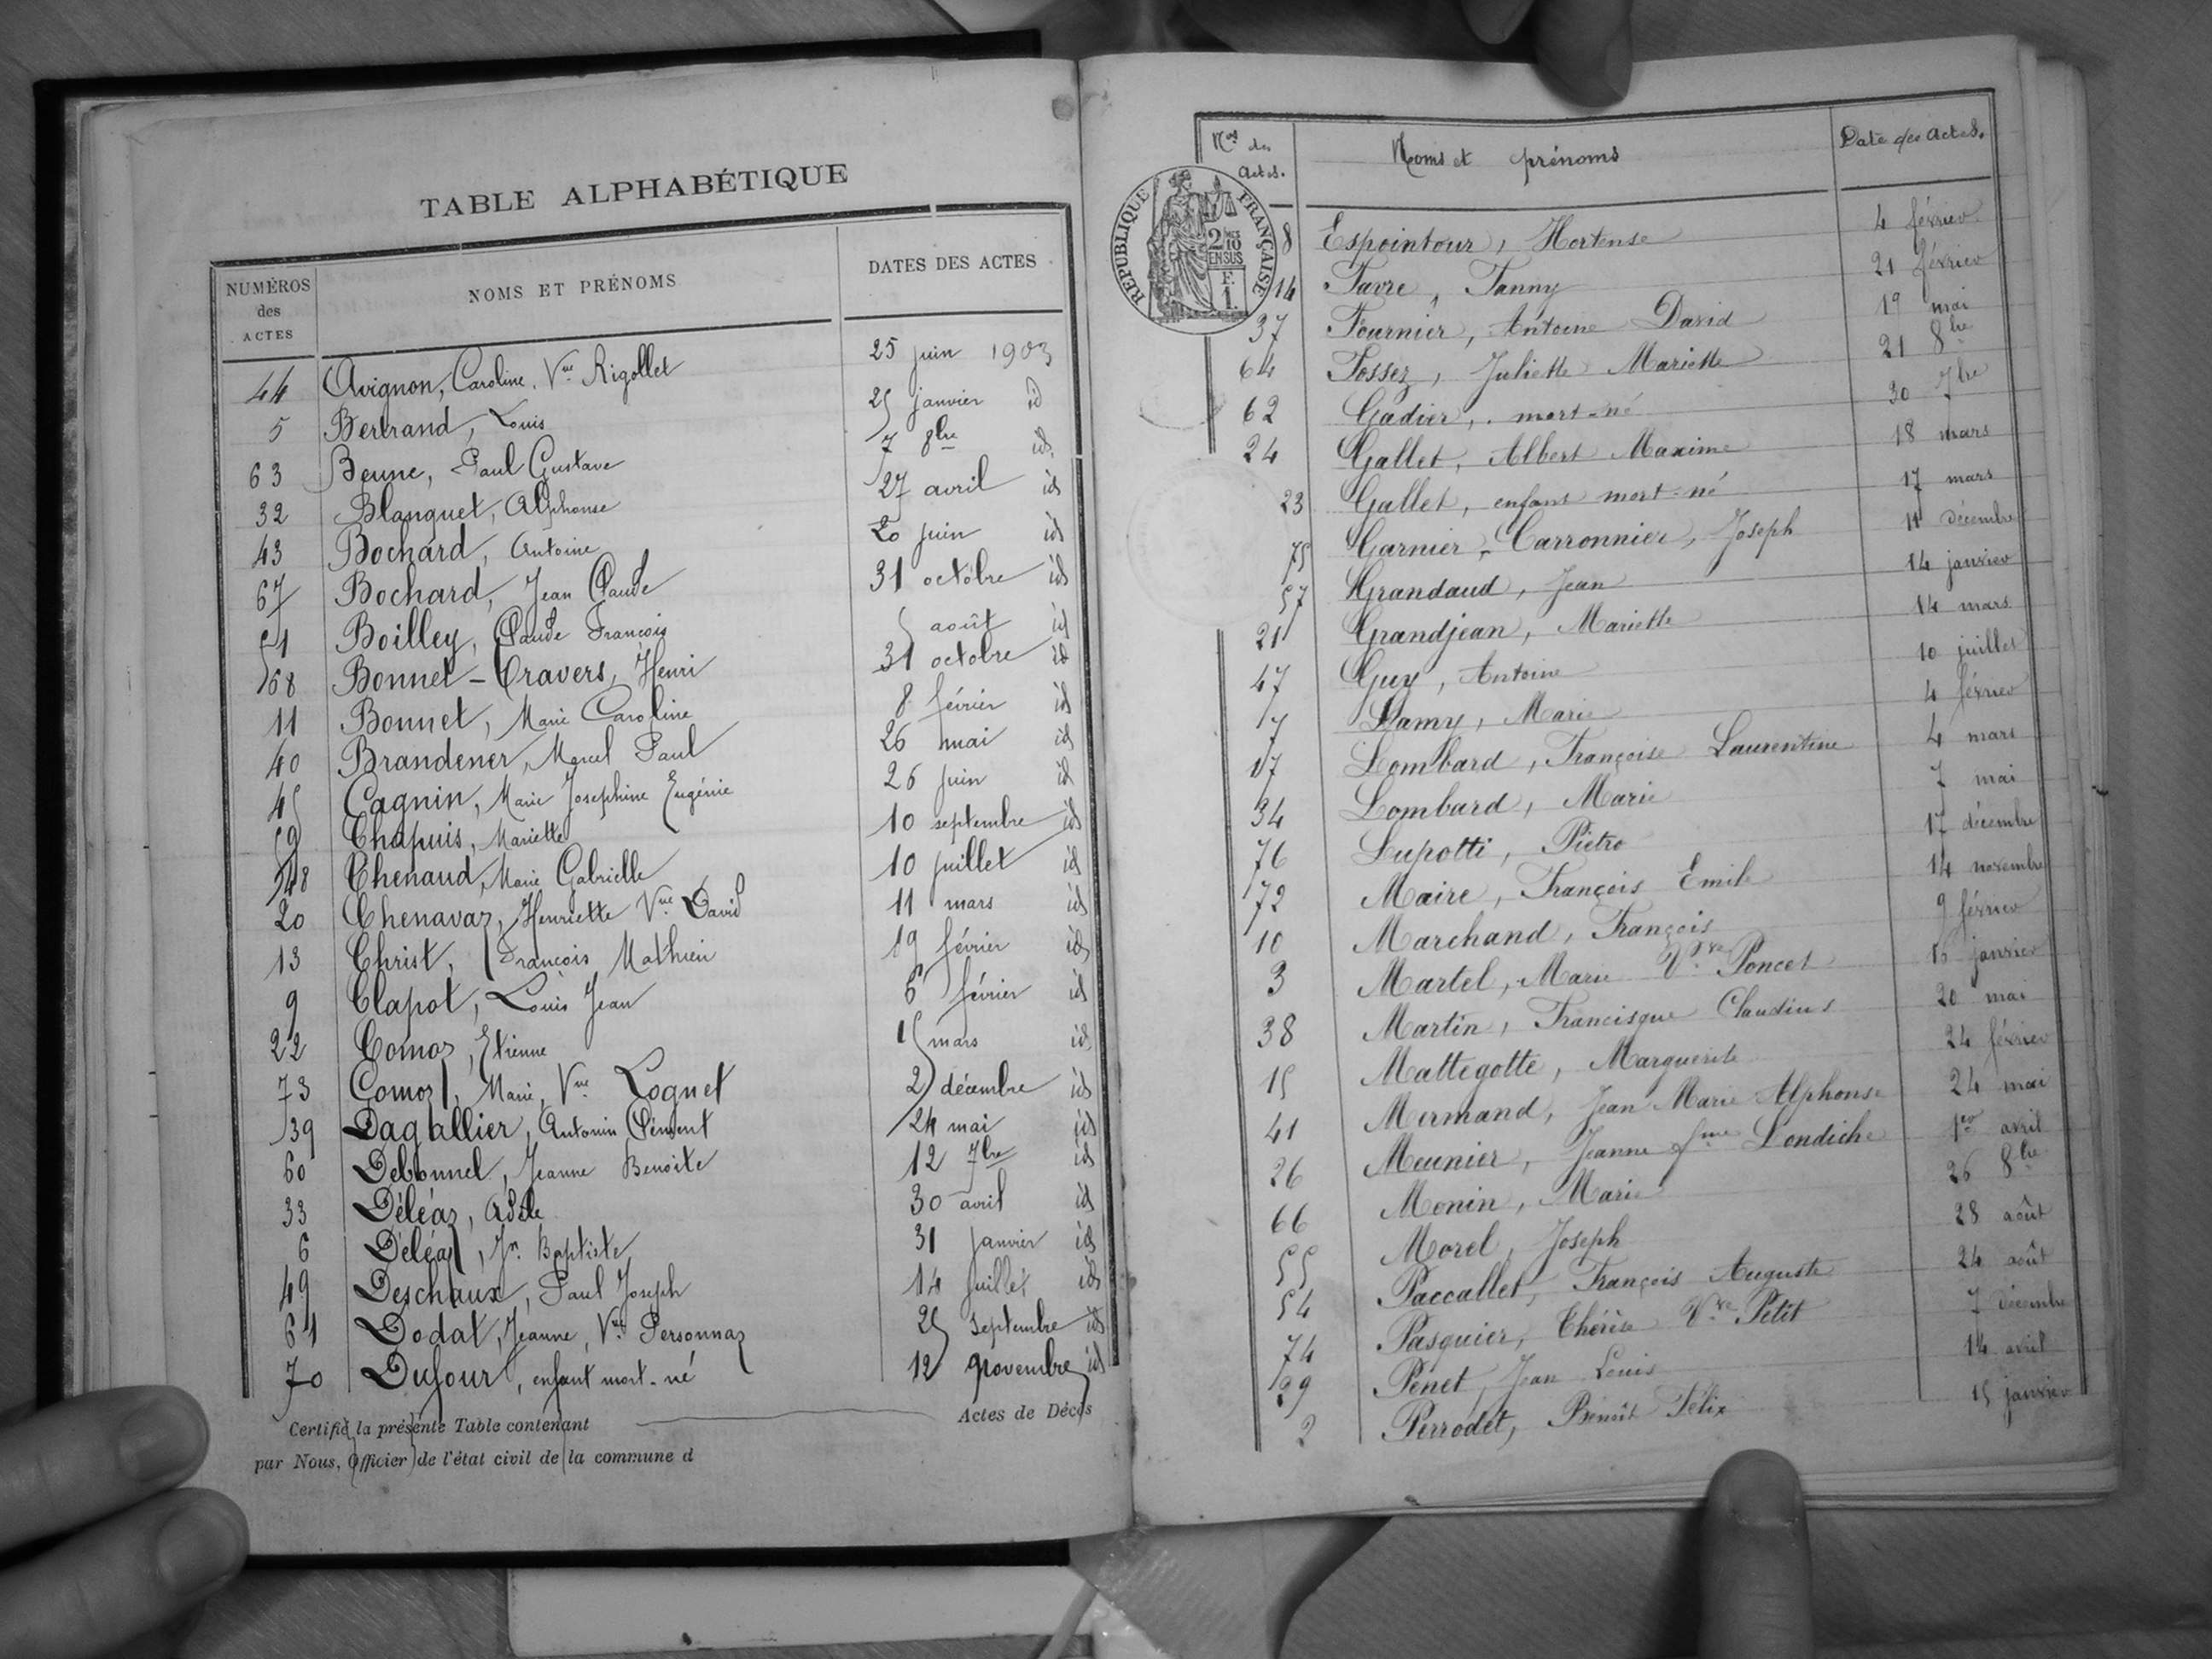 TABLE ALPHABÉTIQUE
NUMÉROS des ACTES NOMS ET PRÉNOMS DATES DES ACTES
44 Avignon, Caroline, Vve Rigollet 25 juin 1903
5 Bertrand, Louis 25 janvier id
63 Beune, Paul Gustave 7 8bre id
32 Blanquet, Alphonse 27 avril id
43 Bochard, Antoine 20 juin id
67 Bochard, Jean Claude 31 octobre id
51 Boilley, Claude François 5 août id
68 Bonnet-Travers, Henri 31 octobre id
11 Bonnet, Marie Caroline 8 février id
40 Brandener, Marcel Paul 26 mai id
45 Cagnin, Marie Josephine Eugénie 26 juin id
59 Chapuis, Mariette 10 septembre id
48 Chenaud, Marie Gabrielle 10 juillet id
20 Chenavaz, Henriette Vve David 11 mars id
13 Christ, François Mathieu 19 février id
9 Clapot, Louis Jean 6 février id
22 Comoz, Etienne 15 mars id
73 Comoz, Marie, Vve Loquet 25 décembre id
39 Dagallier, Antonin Clément 24 mai id
60 Debonnel, Jeanne Benoite 12 7bre id
33 Déléaz, Adèle 30 avril id
6 Déléaz, Jn Baptiste 31 janvier id
49 Deschaux, Paul Joseph 14 juillet id
61 Dodat, Jeanne, Vve Personnaz 25 septembre id
70 Dufour, enfant mort-né 12 novembre id
Certifié la présente Table contenant Actes de Décès
par Nous, Officier de l'état civil de la commune d
Nos des Actes. Noms et prénoms Date des actes.
REPUBLIQUE FRANÇAISE
2/10 EN SUS
F. 1.
8 Espointour, Hortense 4 février
14 Favre, Fanny 21 février
37 Fournier, Antoine David 19 mai
64 Fossez, Juliette Mariette 21 8bre
62 Gadier, mort-né 30 7bre
24 Gallet, Albert Maxime 18 mars
23 Gallet, enfant mort-né 17 mars
75 Garnier-Carronnier, Joseph 11 décembre
57 Grandaud, Jean 14 janvier
21 Grandjean, Mariette 14 mars
47 Guy, Antoine 10 juillet
7 Lamy, Marie 4 février
17 Lombard, Françoise Laurentine 4 mars
34 Lombard, Marie 7 mai
76 Lupotti, Pietro 17 décembre
72 Maire, François Emile 14 novembre
10 Marchand, François 9 février
3 Martel, Marie Vve Poncet 16 janvier
38 Martin, Francisque Claudius 20 mai
15 Mattegotte, Marguerite 24 février
41 Mermand, Jean Marie Alphonse 24 mai
26 Meunier, Jeanne fme Londiche 1er avril
66 Monin, Marie 26 8bre
55 Morel, Joseph 28 août
54 Paccallet, François Auguste 24 août
74 Pasquier, Thérèse Vve Petit 7 décembre
29 Penet, Jean Louis 14 avril
2 Perrodet, Benoît Félix 15 janvier